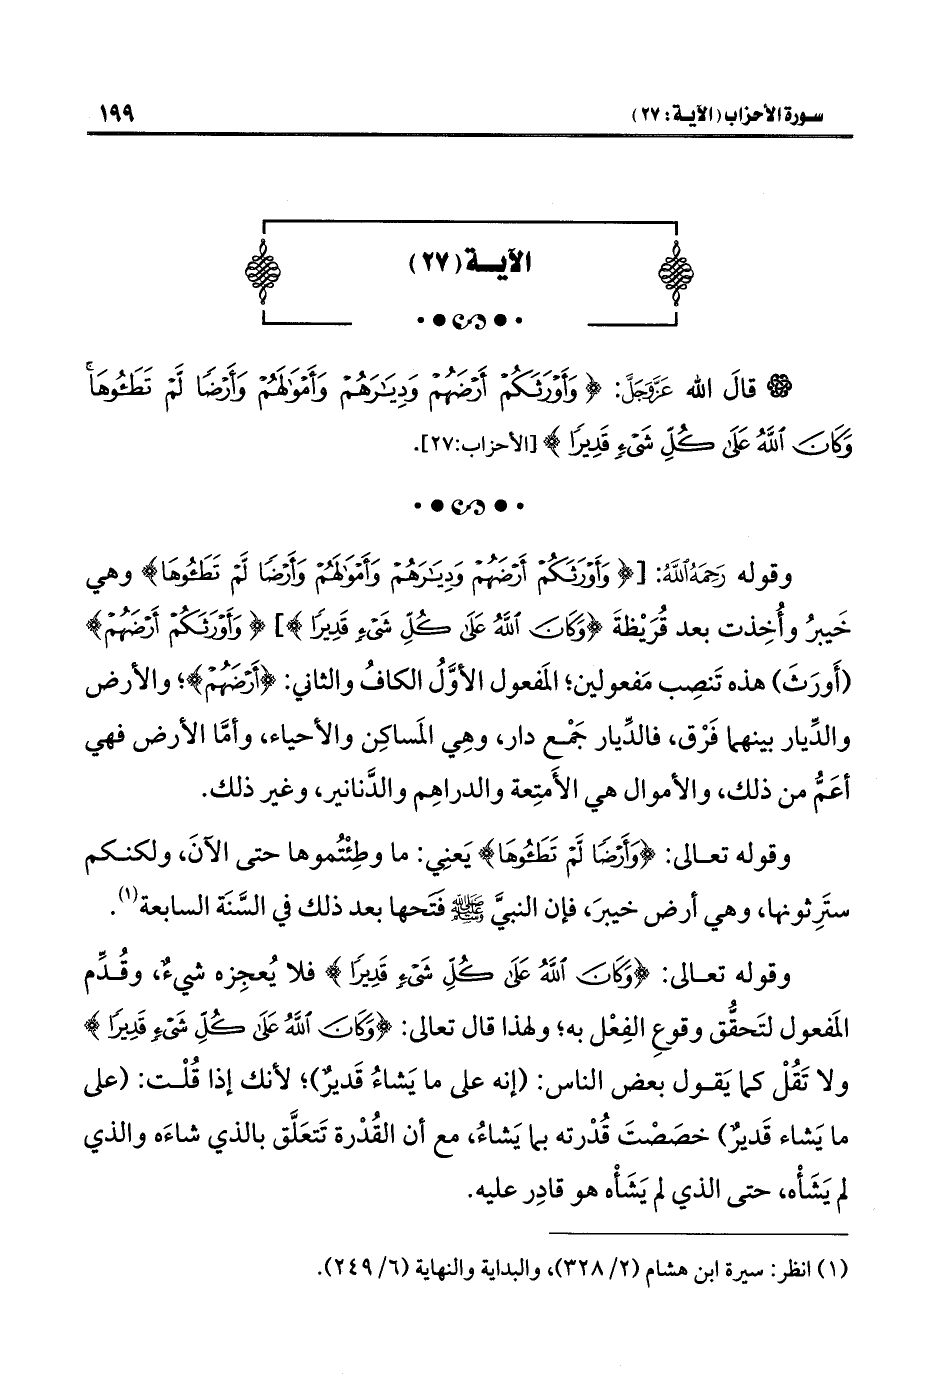 سورة الأحزاب (الآية: ٢٧)
١٩٩
الآيـــة (٢٧)
قالَ الله عَزَّوَجَلَّ: ﴿ وَأَوْرَثَكُمْ أَرْضَهُمْ وَدِيَٰرَهُمْ وَأَمْوَٰلَهُمْ وَأَرْضًا لَّمْ تَطَـُٔوهَا ۚ
وَكَانَ ٱللَّهُ عَلَىٰ كُلِّ شَىْءٍ قَدِيرًا ﴾ [الأحزاب:٢٧].
وقوله رَحِمَهُ ٱللَّهُ: [﴿ وَأَوْرَثَكُمْ أَرْضَهُمْ وَدِيَٰرَهُمْ وَأَمْوَٰلَهُمْ وَأَرْضًا لَّمْ تَطَـُٔوهَا﴾ وهي
خَيبرُ وأُخِذت بعد قُرَيْظةَ ﴿وَكَانَ ٱللَّهُ عَلَىٰ كُلِّ شَىْءٍ قَدِيرًا ﴾] ﴿ وَأَوْرَثَكُمْ أَرْضَهُمْ﴾
(أَورَثَ) هذه تَنصِب مَفعولين؛ المَفعول الأوَّلُ الكافُ والثاني: ﴿أَرْضَهُمْ﴾؛ والأرض
والدِّيار بينهما فَرْق، فالدِّيار جَمْع دار، وهِي المَساكِن والأحياء، وأمَّا الأرض فهي
أعَمُّ من ذلك، والأموال هي الأَمتِعة والدراهِم والدَّنانير، وغير ذلك.
وقوله تعالى: ﴿وَأَرْضًا لَّمْ تَطَـُٔوهَا﴾ يَعنِي: ما وطِئْتُموها حتى الآنَ، ولكنكم
ستَرِثونها، وهي أرض خيبرَ، فإن النبيَّ ﷺ فتَحها بعد ذلك في السَّنَة السابعة(١).
وقوله تعالى: ﴿وَكَانَ ٱللَّهُ عَلَىٰ كُلِّ شَىْءٍ قَدِيرًا ﴾ فلا يُعجِزه شيءٌ، وقُدِّم
المَفعول لتَحقُّق وقوعِ الفِعْل به؛ ولهذا قال تعالى: ﴿وَكَانَ ٱللَّهُ عَلَىٰ كُلِّ شَىْءٍ قَدِيرًا ﴾
ولا تَقُلْ كما يَقول بعض الناس: (إنه على ما يَشاءُ قَديرٌ)؛ لأنك إذا قُلْت: (على
ما يَشاء قَديرٌ) خصَصْتَ قُدْرته بما يَشاءُ، مع أن القُدْرة تَتعَلَّق بالذي شاءَه والذي
لم يَشَأْه، حتى الذي لم يَشَأْه هو قادِر عليه.
(١) انظر: سيرة ابن هشام (٢/ ٣٢٨)، والبداية والنهاية (٦/ ٢٤٩).